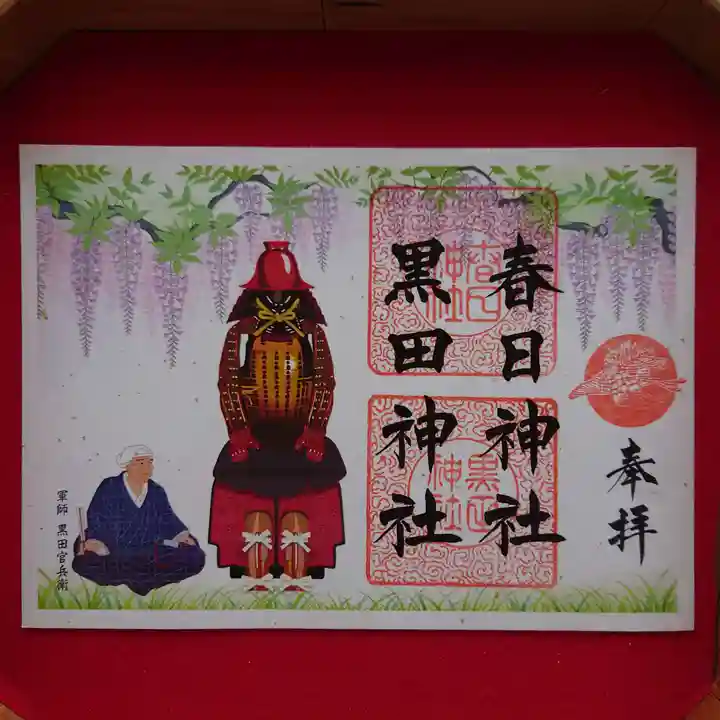 奉拝
春日神社
黒田神社
春日
神社
黒田
神社
軍師 黒田官兵衛